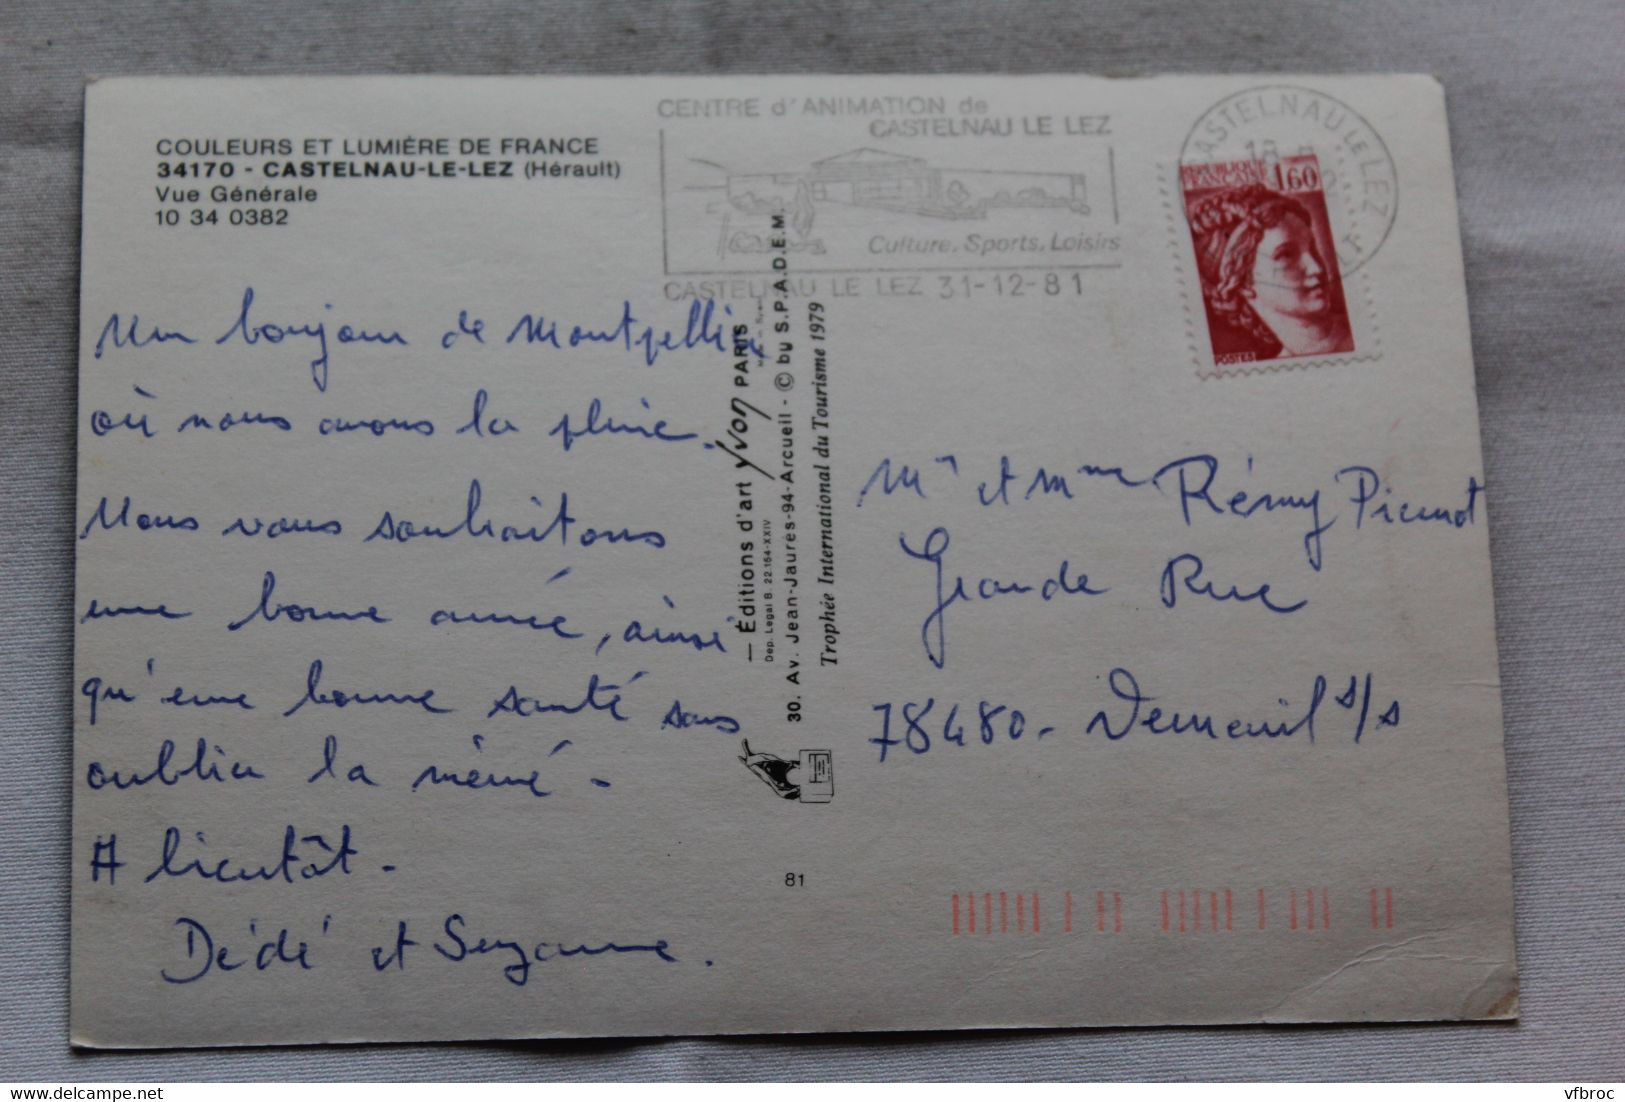 COULEURS ET LUMIÈRE DE FRANCE
34170 - CASTELNAU-LE-LEZ (Hérault)
Vue Générale
10 34 0382
CENTRE d'ANIMATION de
CASTELNAU LE LEZ
Culture. Sports. Loisirs
CASTELNAU LE LEZ 31-12-81
CASTELNAU LE LEZ
18
REPUBLIQUE
FRANÇAISE 1,60
POSTES
Un bonjour de Montpellier
où nous avons la pluie.
Nous vous souhaitons
une bonne année, ainsi
qu'une bonne santé sans
oublier la mémé -
A bientôt -
Dédé et Suzanne.
— Éditions d'art Yvon PARIS
Dep. Légal B. 22.154-XXIV
30. Av. Jean-Jaurès-94-Arcueil - © by S.P.A.D.E.M.
Trophée International du Tourisme 1979
81
Mr et Mme Rémy Picundt
Grande Rue
78480 - Verneuil s/s
delcampe.net
vfbroc